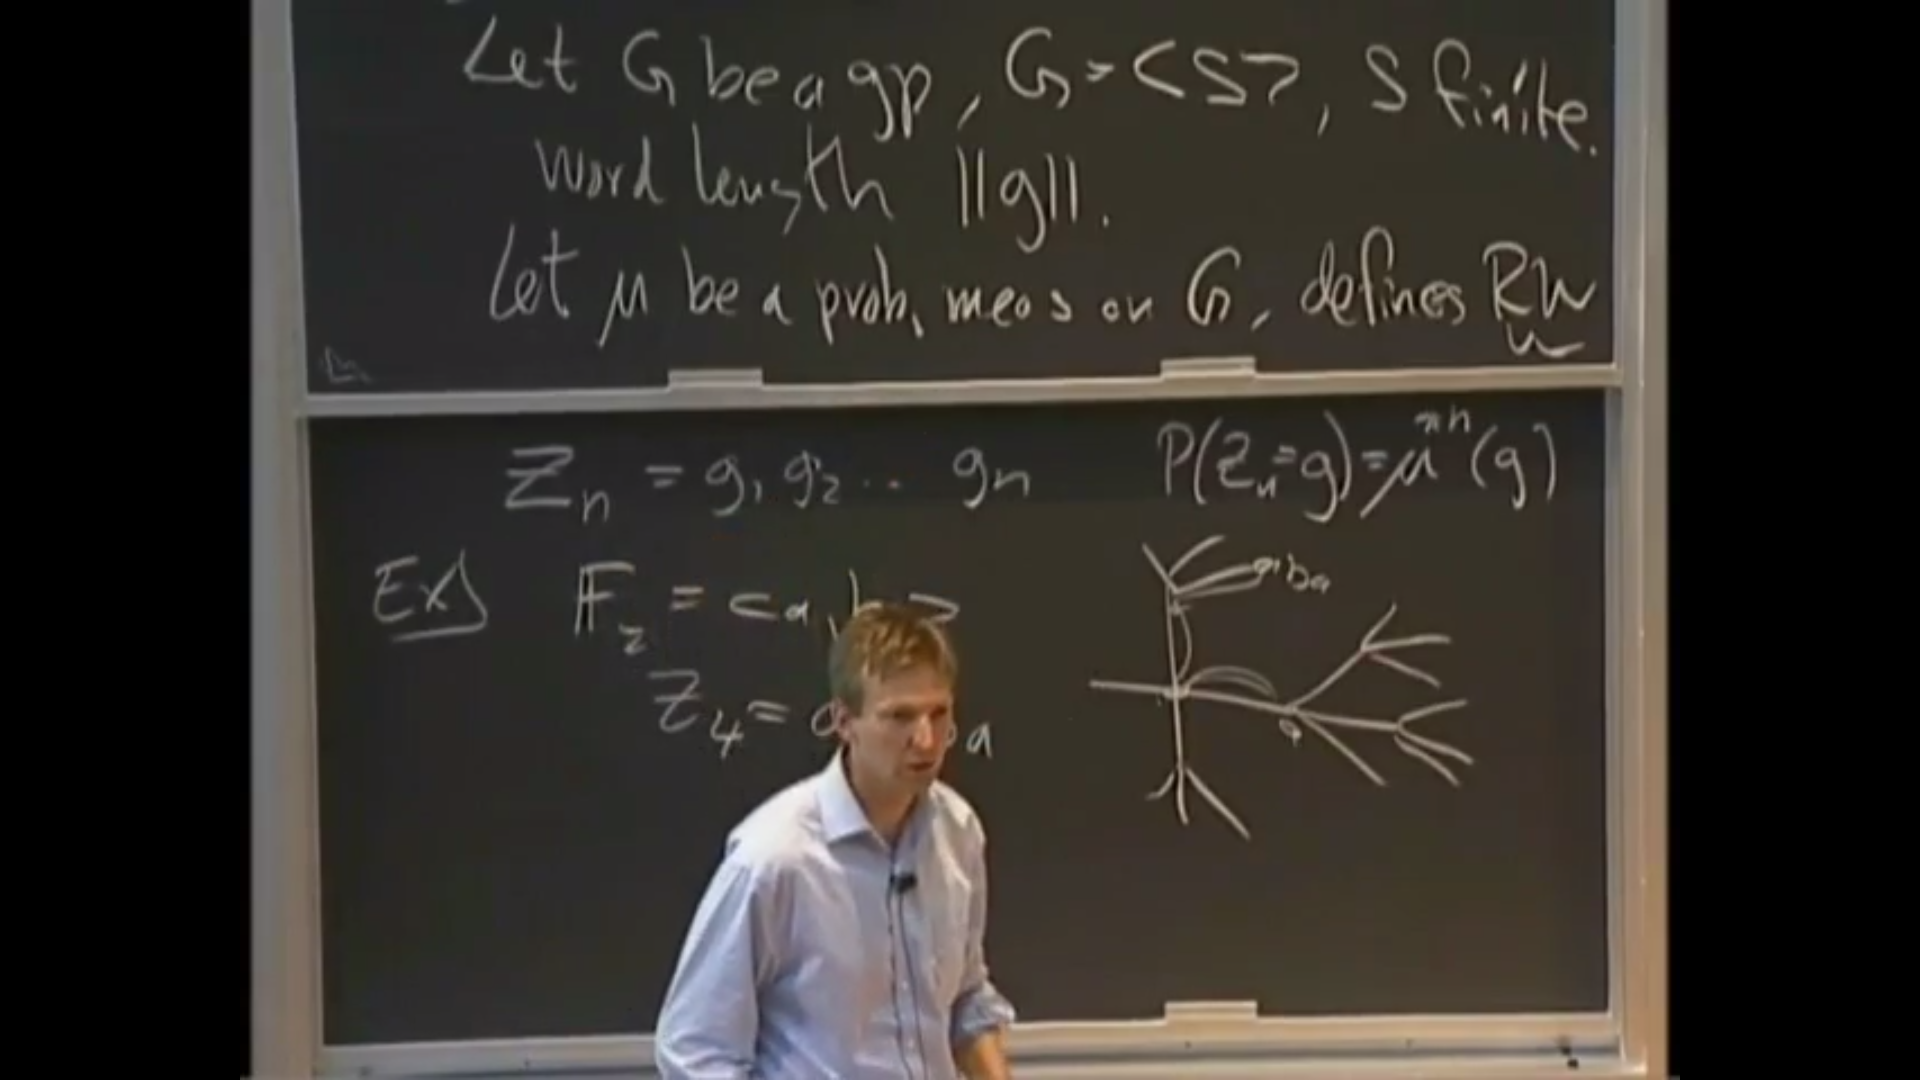 Let G be a gp, G = <S>, S finite.
word length ||g||.
Let μ be a prob. meas on G, defines RW
Z_n = g_1 g_2 ... g_n
P(Z_n = g) = μ^{*n}(g)
Ex) F_2 = <a, b>
ba
Z_4 = a
a
a